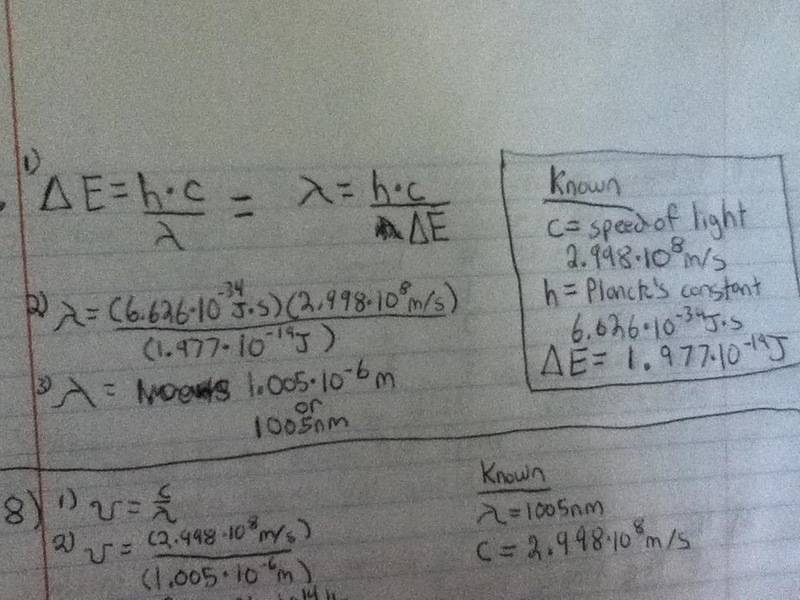 1)
ΔE = h·c/λ = λ = h·c/ΔE
2) λ = (6.626·10⁻³⁴J·s)(2.998·10⁸m/s)/(1.977·10⁻¹⁹J)
3) λ = 1.005·10⁻⁶m
or
1005nm
Known
c = speed of light
2.998·10⁸m/s
h = Planck's constant
6.626·10⁻³⁴J·s
ΔE = 1.977·10⁻¹⁹J
8) 1) υ = c/λ
2) υ = (2.998·10⁸m/s)/(1.005·10⁻⁶m)
Known
λ = 1005nm
c = 2.998·10⁸m/s